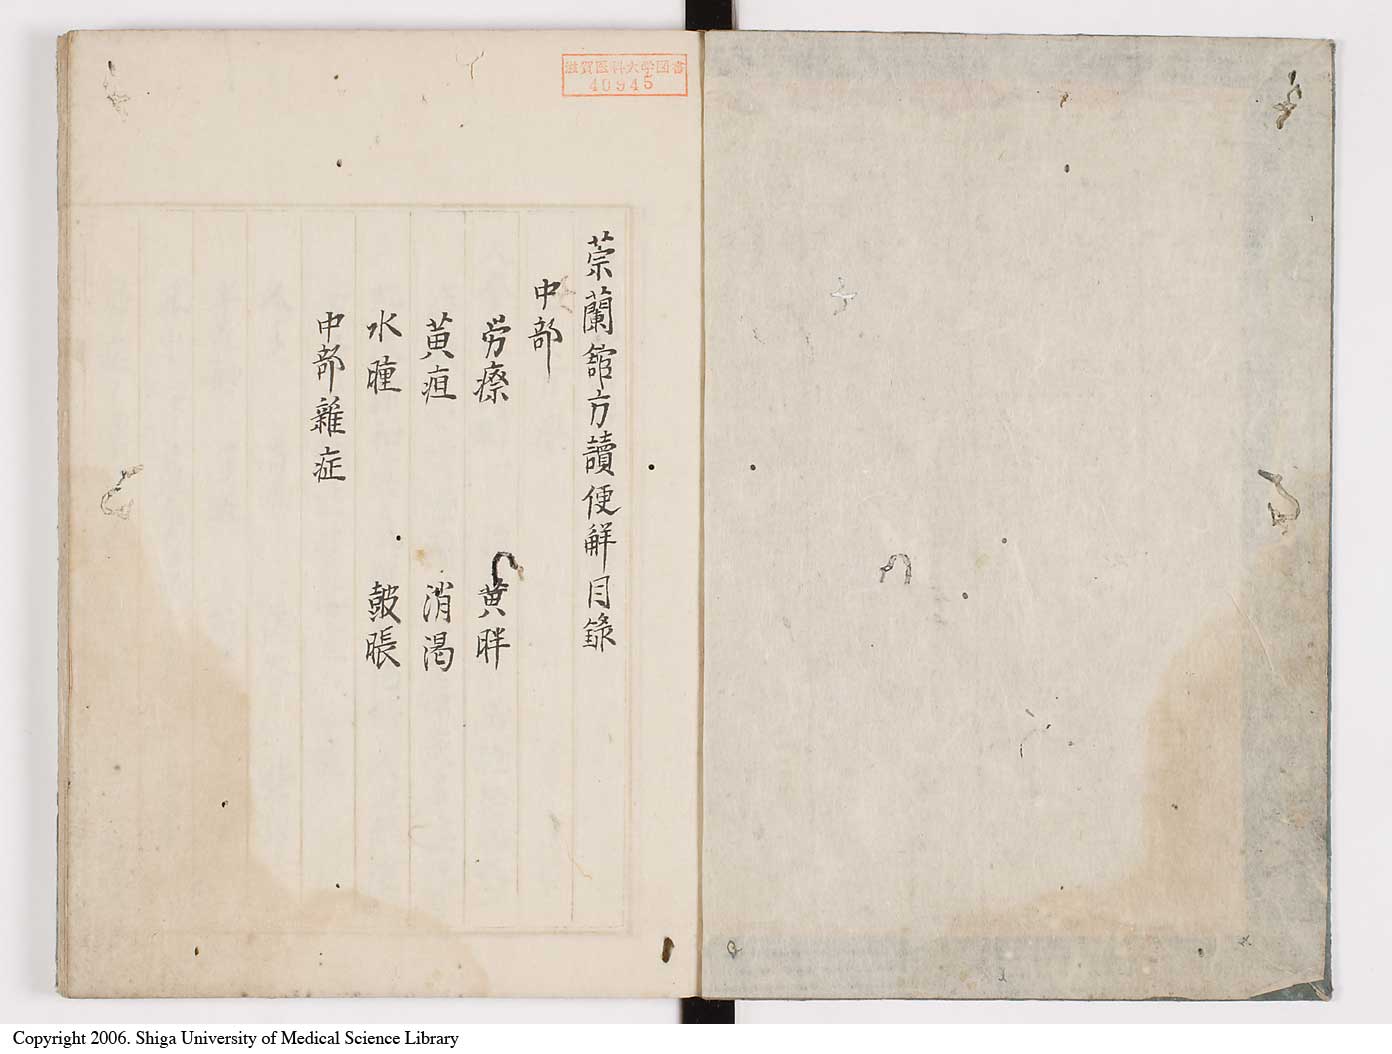 滋賀医科大学図書
40945
崇蘭館方讀便解目錄
中部
労瘵 黄胖
黄疸 消渇
水腫 皷脹
中部雜症
Copyright 2006. Shiga University of Medical Science Library